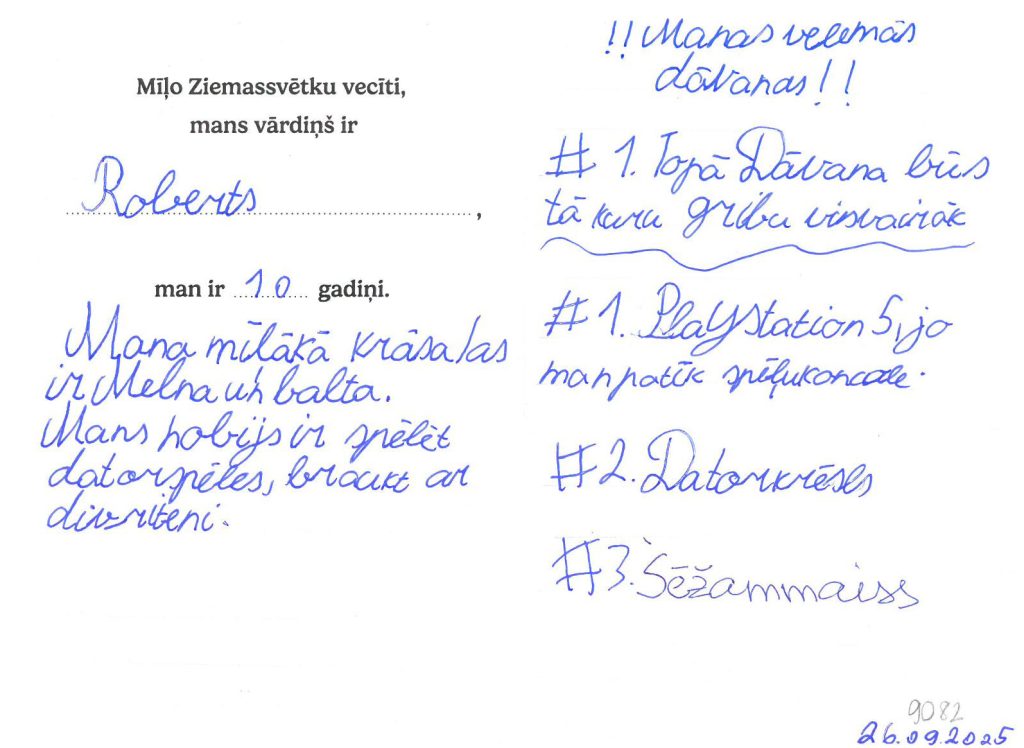 Mīļo Ziemassvētku vecīti,
mans vārdiņš ir
Roberts,
man ir 10 gadiņi.
Mana mīļākā krāsa/as
ir Melna un balta.
Mans hobijs ir spēlēt
datorspēles, braukt ar
divriteni.
!! Manas velemās
dāvanas!!
# 1. Topā Dāvana būs
tā kuru gribu visvairāk
# 1. PlaYstation 5, jo
man patīk spēļukoncole.
#2. Datorkrēsls
#3. Sēžammaiss
9082
26.09.2025